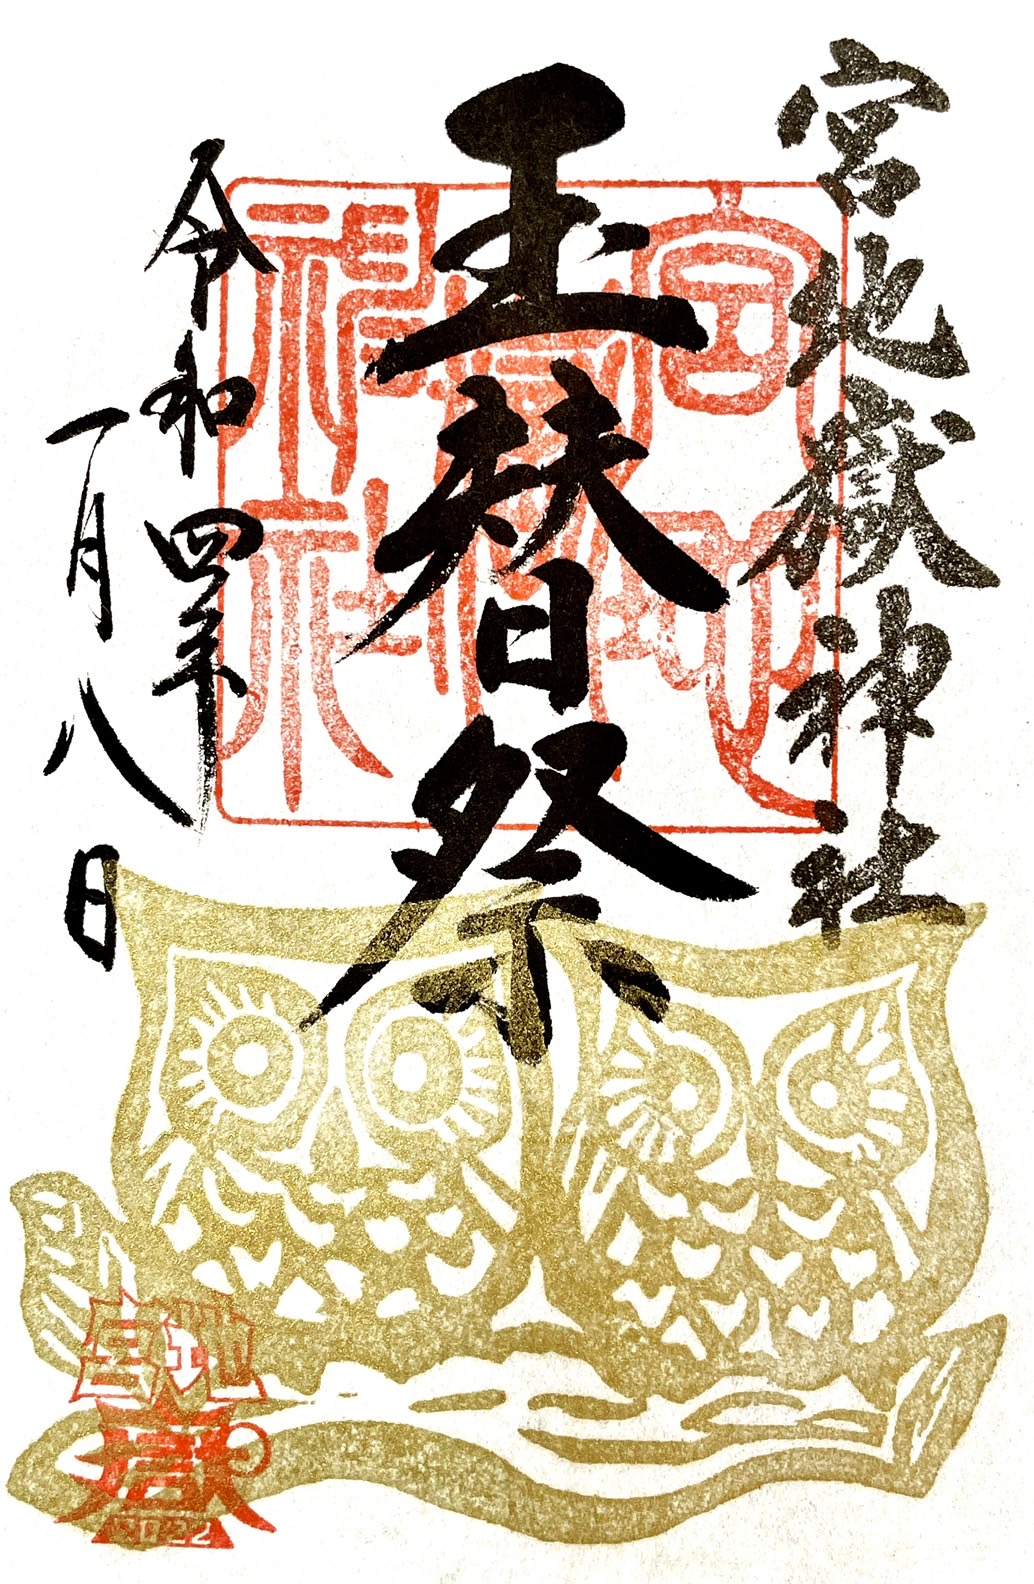 宮地嶽神社
玉替祭
令和四年
一月八日
宮地嶽神社
宮地
嶽
2022